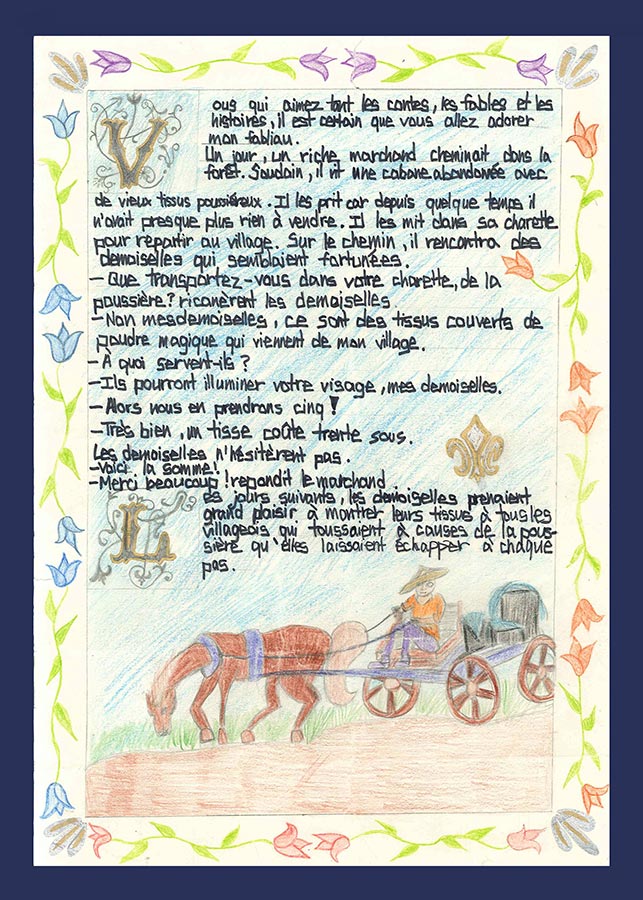 Vous qui aimez tant les contes, les fables et les
histoires, il est certain que vous allez adorer
mon fabliau.
Un jour, un riche marchand cheminait dans la
forêt. Soudain, il vit une cabane abandonnée avec
de vieux tissus poussiéreux. Il les prit car depuis quelque temps il
n'avait presque plus rien à vendre. Il les mit dans sa charette
pour repartir au village. Sur le chemin, il rencontra des
demoiselles qui semblaient fortunées.
- Que transportez-vous dans votre charette, de la
poussière? ricanèrent les demoiselles.
- Non mesdemoiselles, ce sont des tissus couverts de
poudre magique qui viennent de mon village.
- À quoi servent-ils ?
- Ils pourront illuminer votre visage, mes demoiselles.
- Alors nous en prendrons cinq !
- Très bien, un tisse coûte trente sous.
Les demoiselles n'hésitèrent pas.
- Voici la somme!
- Merci beaucoup ! repondit le marchand
Les jours suivants, les demoiselles prenaient
grand plaisir à montrer leurs tissus à tous les
villageois qui toussaient à causes de la pous-
sière qu'elles laissaient échapper à chaque
pas.